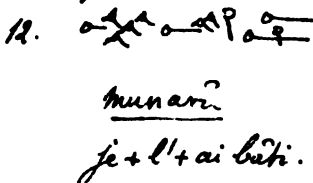 12.
munarû
je + l' + ai bâti.